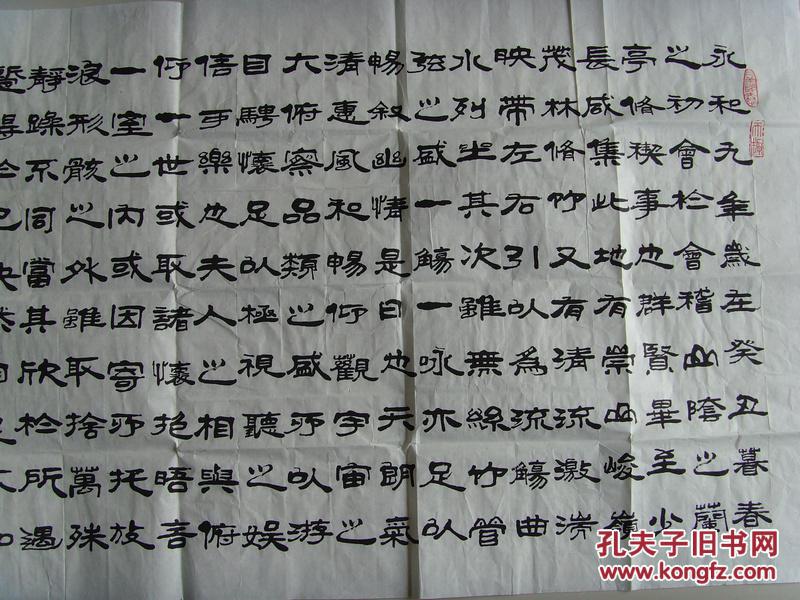 永和九年歲在癸丑暮春
之初會於會稽山陰之蘭
亭脩稧事也群賢畢至少
長咸集此地有崇山峻嶺
茂林脩竹又有清流激湍
映帶左右引以為流觴曲
水列坐其次雖無絲竹管
弦之盛一觴一咏亦足以
暢敘幽情是日也天朗氣
清惠風和暢仰觀宇宙之
大俯察品類之盛所以游
目騁懷足以極視聽之娛
信可樂也夫人之相與俯
仰一世或取諸懷抱晤言
一室之內或因寄所托放
浪形骸之外雖取捨萬殊
靜躁不同當其欣於所遇
得於己
孔夫子旧书网
www.kongfz.com